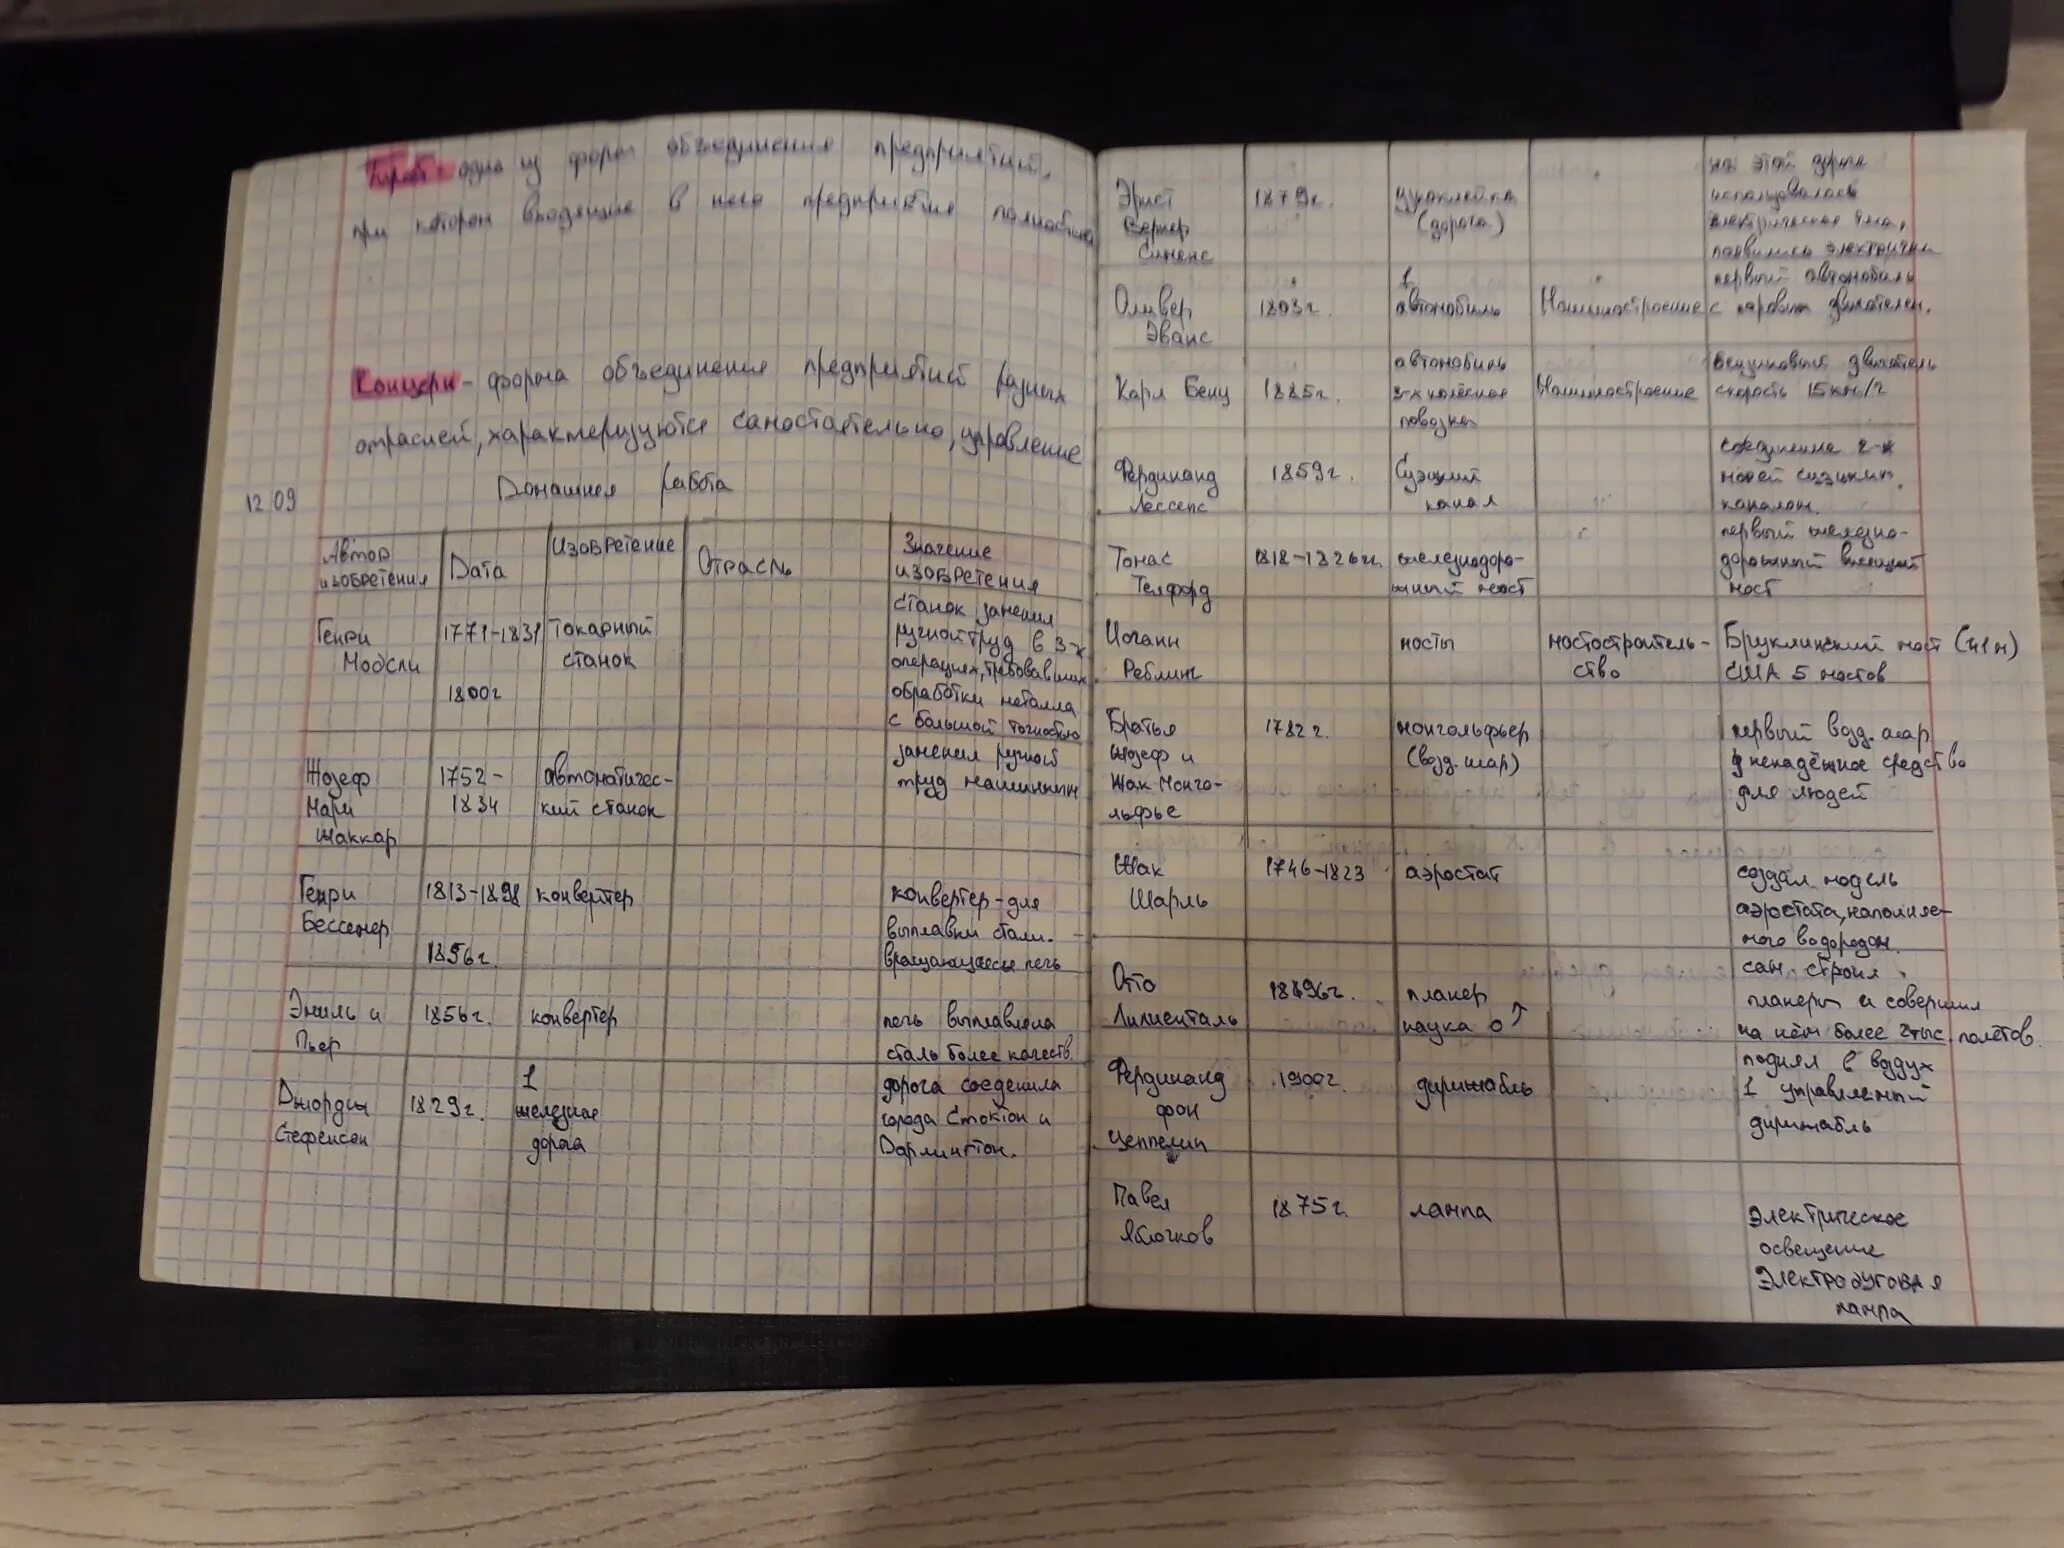 Трест - одна из форм объединения предприятий,
при котором входящие в него предприятия полностью
Концерн - форма объединения предприятий разных
отраслей, характеризуются самостоятельно, управление
12.09 Домашняя работа
Автор изобретения | Дата | Изобретение | Отрасль | Значение изобретения
Генри Модсли | 1771-1831 1800г | Токарный станок | | станок заменил ручной труд в 3-х операциях, требовавших обработки металла с большой точностью
Жозеф Мари Жаккар | 1752-1834 | автоматический станок | | заменил ручной труд машинным
Генри Бессемер | 1813-1898 1856г. | конвертер | | конвертер - для выплавки стали. вращающаяся печь
Эмиль и Пьер | 1856г. | конвертер | | печь выплавляла сталь более качеств.
Джордж Стефенсон | 1829г. | 1 железная дорога | | дорога соединила города Стоктон и Дарлингтон.
Эрнст Вернер Сименс | 1879г. | (дорога) | | на этой дороге использовалась электрическая тяга, появились электрички
Оливер Эванс | 1803г. | 1 автомобиль | Машиностроение | первый автомобиль с паровым двигателем.
Карл Бенц | 1885г. | автомобиль 3-х колёсная повозка | Машиностроение | бензиновый двигатель скорость 15км/г
Фердинанд Лессепс | 1859г. | Суэцкий канал | | соединение 2-х морей суэцким каналом.
Томас Телфорд | 1818-1826гг. | железнодорожный мост | | первый железнодорожный висящий мост
Иоганн Реблинг | | мосты | мостостроительство | Бруклинский мост (41м) США 5 мостов
Братья Жозеф и Жак Монгольфье | 1782г. | монгольфьер (возд. шар) | | первый возд. шар ненадёжное средство для людей
Жак Шарль | 1746-1823 | аэростат | | создал модель аэростата, наполняемого водородом.
Отто Лилиенталь | 1896г. | планер наука о ↑ | | сам строил планеры и совершил на нём более 2тыс. полётов.
Фердинанд фон Цеппелин | 1900г. | дирижабль | | поднял в воздух 1 управляемый дирижабль
Павел Яблочков | 1875г. | лампа | | электрическое освещение Электродуговая лампа